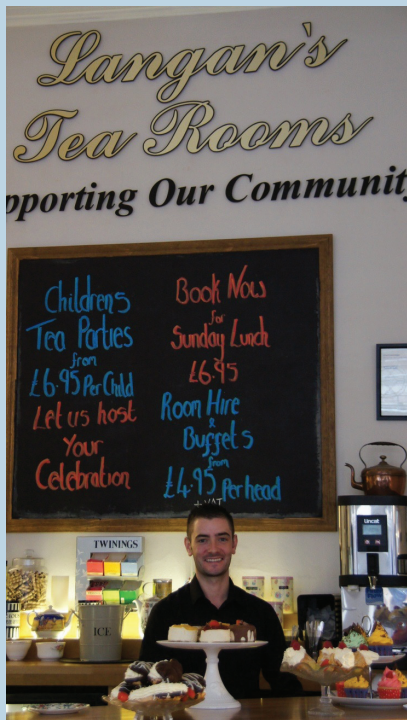 Langan's
Tea Rooms
pporting Our Community
Childrens
Tea Parties
from
£6.95 Per Child
Let us host
Your
Celebration
Book Now
for
Sunday Lunch
£6.95
Room Hire
&
Buffets
from
£4.95 Per head
+ VAT
TWININGS
ICE
Lincat